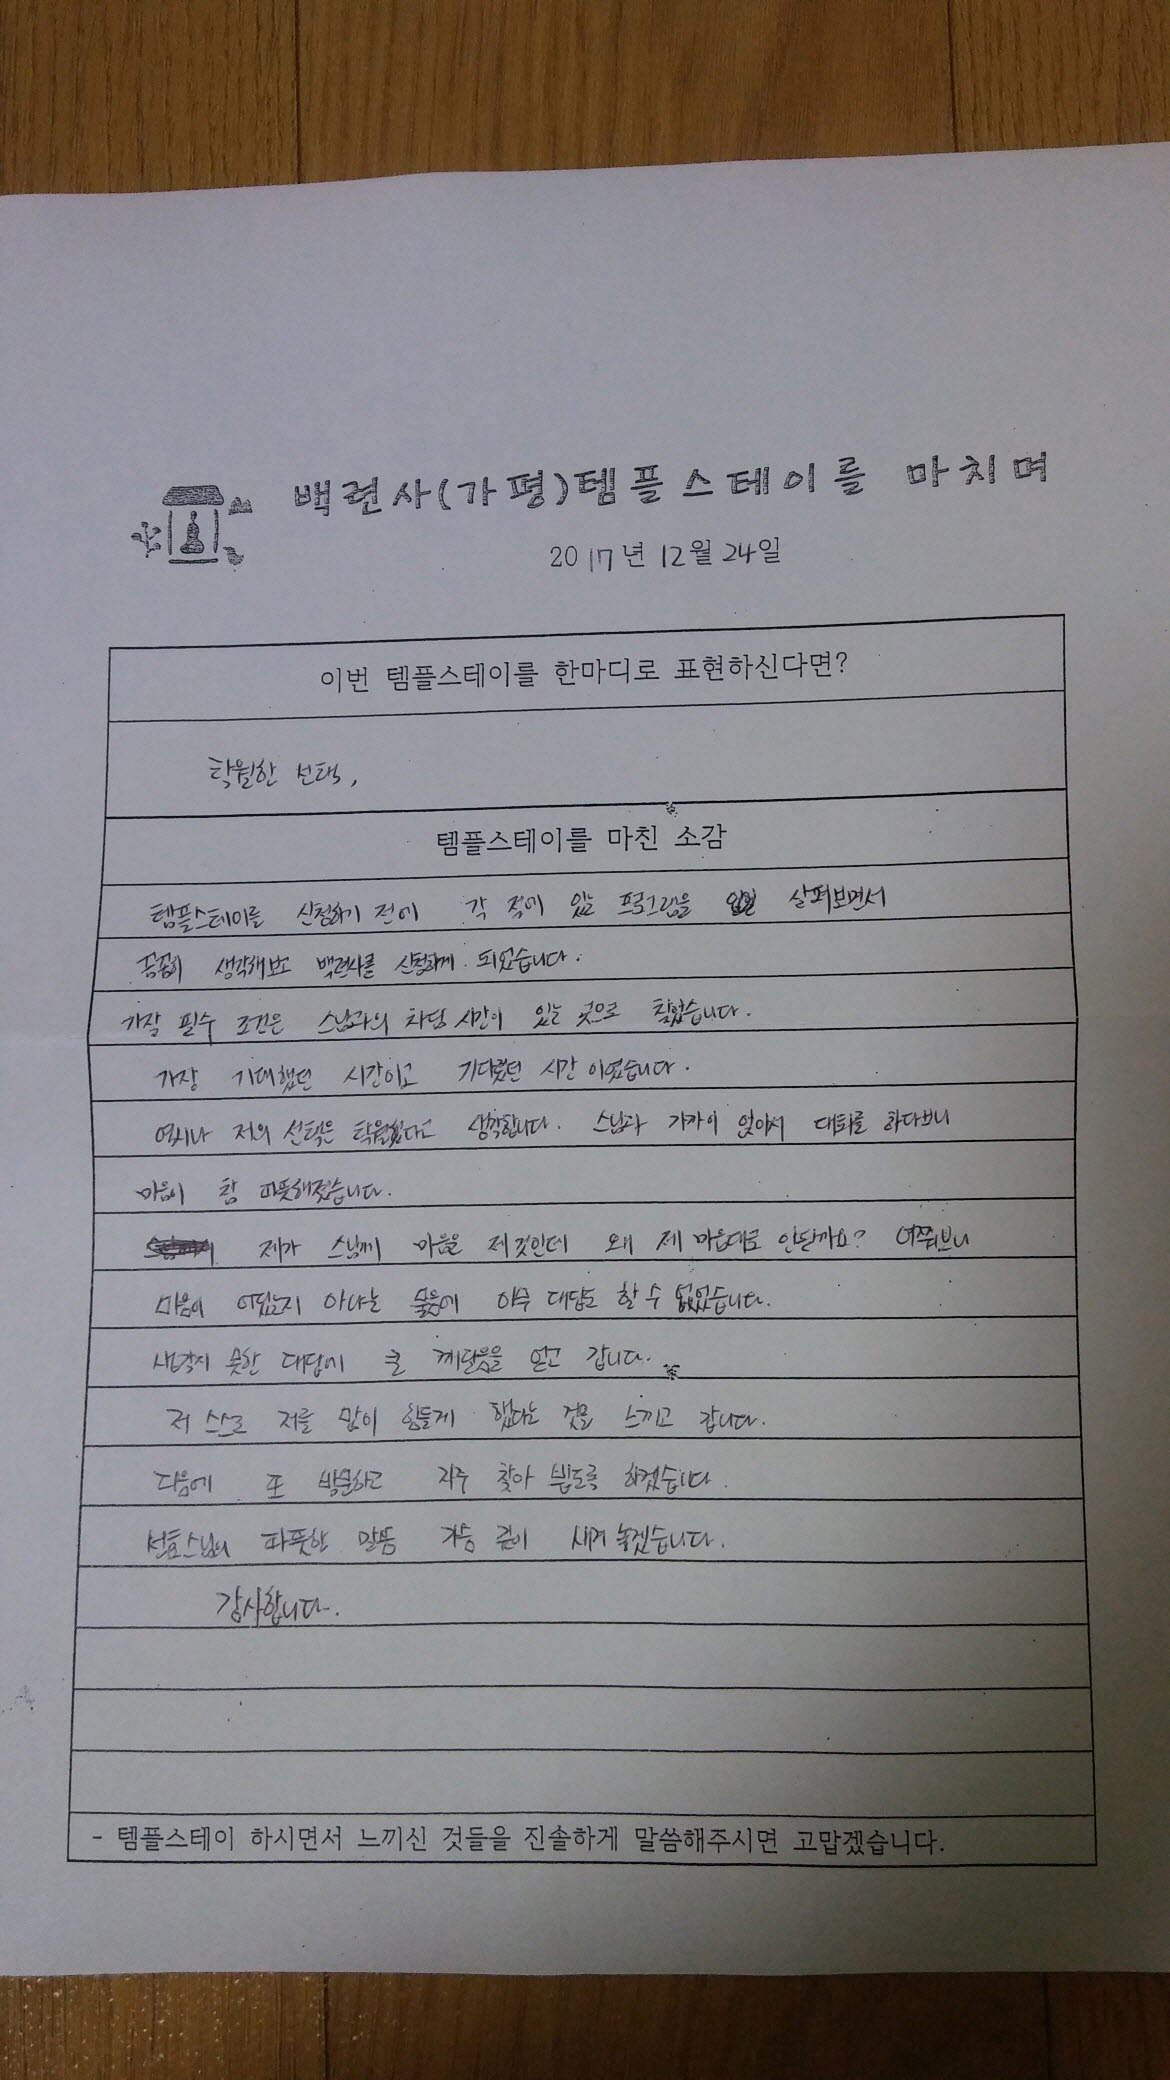 백련사(가평)템플스테이를 마치며
2017년 12월 24일
이번 템플스테이를 한마디로 표현하신다면?
탁월한 선택,
템플스테이를 마친 소감
템플스테이를 신청하기 전에 각 절에 있는 프로그램을 살펴보면서
꼼꼼히 생각해보고 백련사를 신청하게 되었습니다.
가장 필수 조건은 스님과의 차담 시간이 있는 곳으로 찾았습니다.
가장 기대했던 시간이고 기다렸던 시간 이였습니다.
역시나 저의 선택은 탁월했다고 생각합니다. 스님과 가까이 앉아서 대화를 하다보니
마음이 참 따뜻해졌습니다.
제가 스님께 마음은 제것인데 왜 제 마음대로 안될까요? 여쭤보니
마음이 어딨는지 아냐는 물음에 아무 대답도 할 수 없었습니다.
생각지 못한 대답에 큰 깨달음을 얻고 갑니다.
저 스스로 저를 많이 힘들게 했다는 것을 느끼고 갑니다.
다음에 또 방문하고 자주 찾아 뵙도록 하겠습니다.
스님의 따뜻한 말씀 가슴 깊이 새겨 놓겠습니다.
감사합니다.
- 템플스테이 하시면서 느끼신 것들을 진솔하게 말씀해주시면 고맙겠습니다.